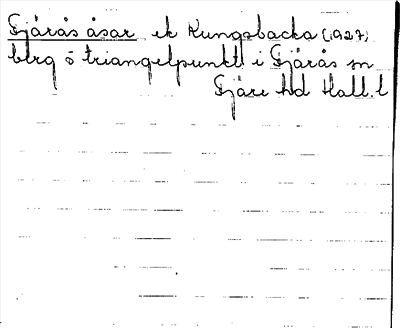 Fjärås åsar ek Kungsbacka (1927)
berg o triangelpunkt i Fjärås sn
Fjäre hd Hall. l